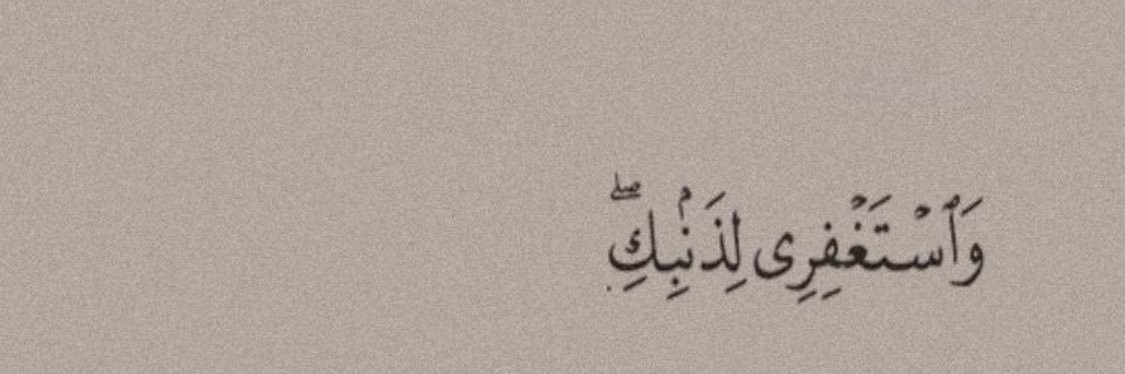 وَٱسْتَغْفِرِى لِذَنۢبِكِۖ